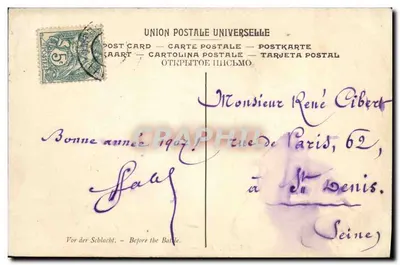 UNION POSTALE UNIVERSELLE
POST CARD – CARTE POSTALE – POSTKARTE
KAART – CARTOLINA POSTALE – TARJETA POSTAL
ОТКРЫТОЕ ПИСЬМО
5
Monsieur René Cibert
Bonne année 1907! rue de Paris, 62,
à St Denis.
(Seine)
Vor der Schlacht. - Before the Battle.
CARTHAGRAPH